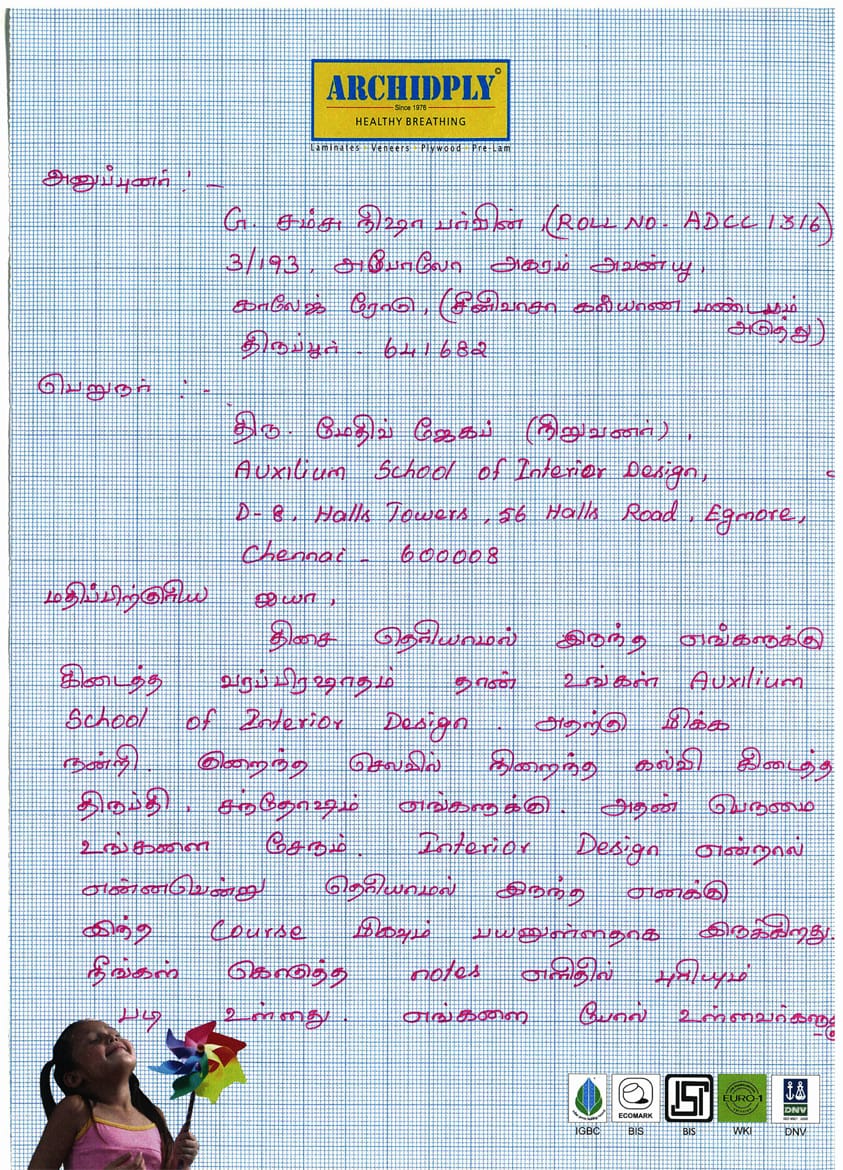 ARCHIDPLY©
Since 1976
HEALTHY BREATHING
Laminates Veneers Plywood Pre-Lam
அனுப்புனர் : -
G. சம்சு நிஷா பர்வின் ,(ROLL NO. ADCC 1316)
3/193, அபோலோ அகரம் அவன்யூ,
காலேஜ் ரோடு, (சீனிவாசா கல்யாண மண்டபம்
அடுத்து)
திருப்பூர் - 641682
பெறுநர் : -
திரு. மேதிவ் ஜேகப் (நிறுவனர்),
Auxilium School of Interior Design,
D-8, Halls Towers, 56 Halls Road, Egmore,
Chennai - 600008
மதிப்பிற்குரிய ஐயா,
திசை தெரியாமல் இருந்த எங்களுக்கு
கிடைத்த வரப்பிரஷாதம் தான் உங்கள் Auxilium
School of Interior Design. அதற்கு மிக்க
நன்றி. குறைந்த செலவில் நிறைந்த கல்வி கிடைத்த
திருப்தி, சந்தோஷம் எங்களுக்கு. அதன் பெருமை
உங்களை சேரும். Interior Design என்றால்
என்னவென்று தெரியாமல் இருந்த எனக்கு
இந்த Course மிகவும் பயனுள்ளதாக இருக்கிறது.
நீங்கள் கொடுத்த notes எளிதில் புரியும்
படி உள்ளது. எங்களை போல் உள்ளவர்களுக்கு
IGBC
ECOMARK
BIS
BIS
EURO-1
WKI
DNV
DNV